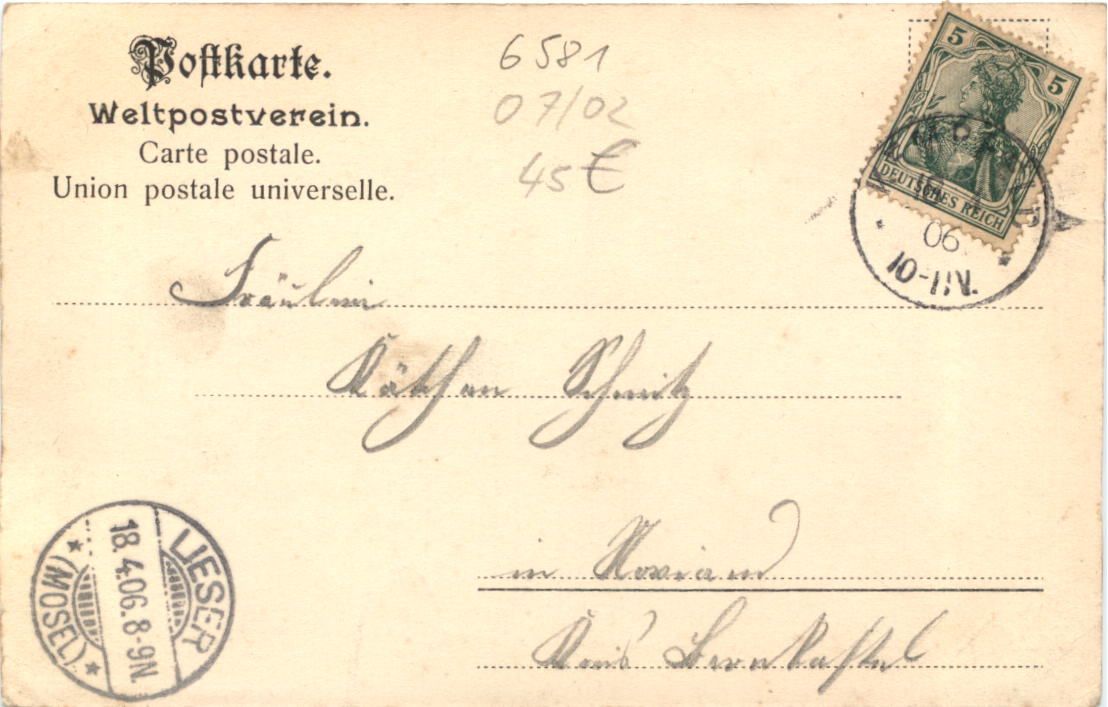 Postkarte.
Weltpostverein.
Carte postale.
Union postale universelle.
6581
07/02
45 €
5 5
DEUTSCHES REICH
06
10-11N.
Fräulein
Käthchen Schmitz
in Noviand
Kreis Bernkastel
LIESER
18.4.06.8-9N
* (MOSEL) *